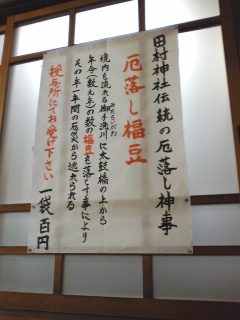 田村神社伝統の厄落し神事
厄落し福豆
境内を流れる御手洗川に太鼓橋の上から
みたらしがわ
年令(数え年)の数の福豆を落とす事により
その年一年間の厄災から逃れられる
授与所にてお受け下さい 一袋百円